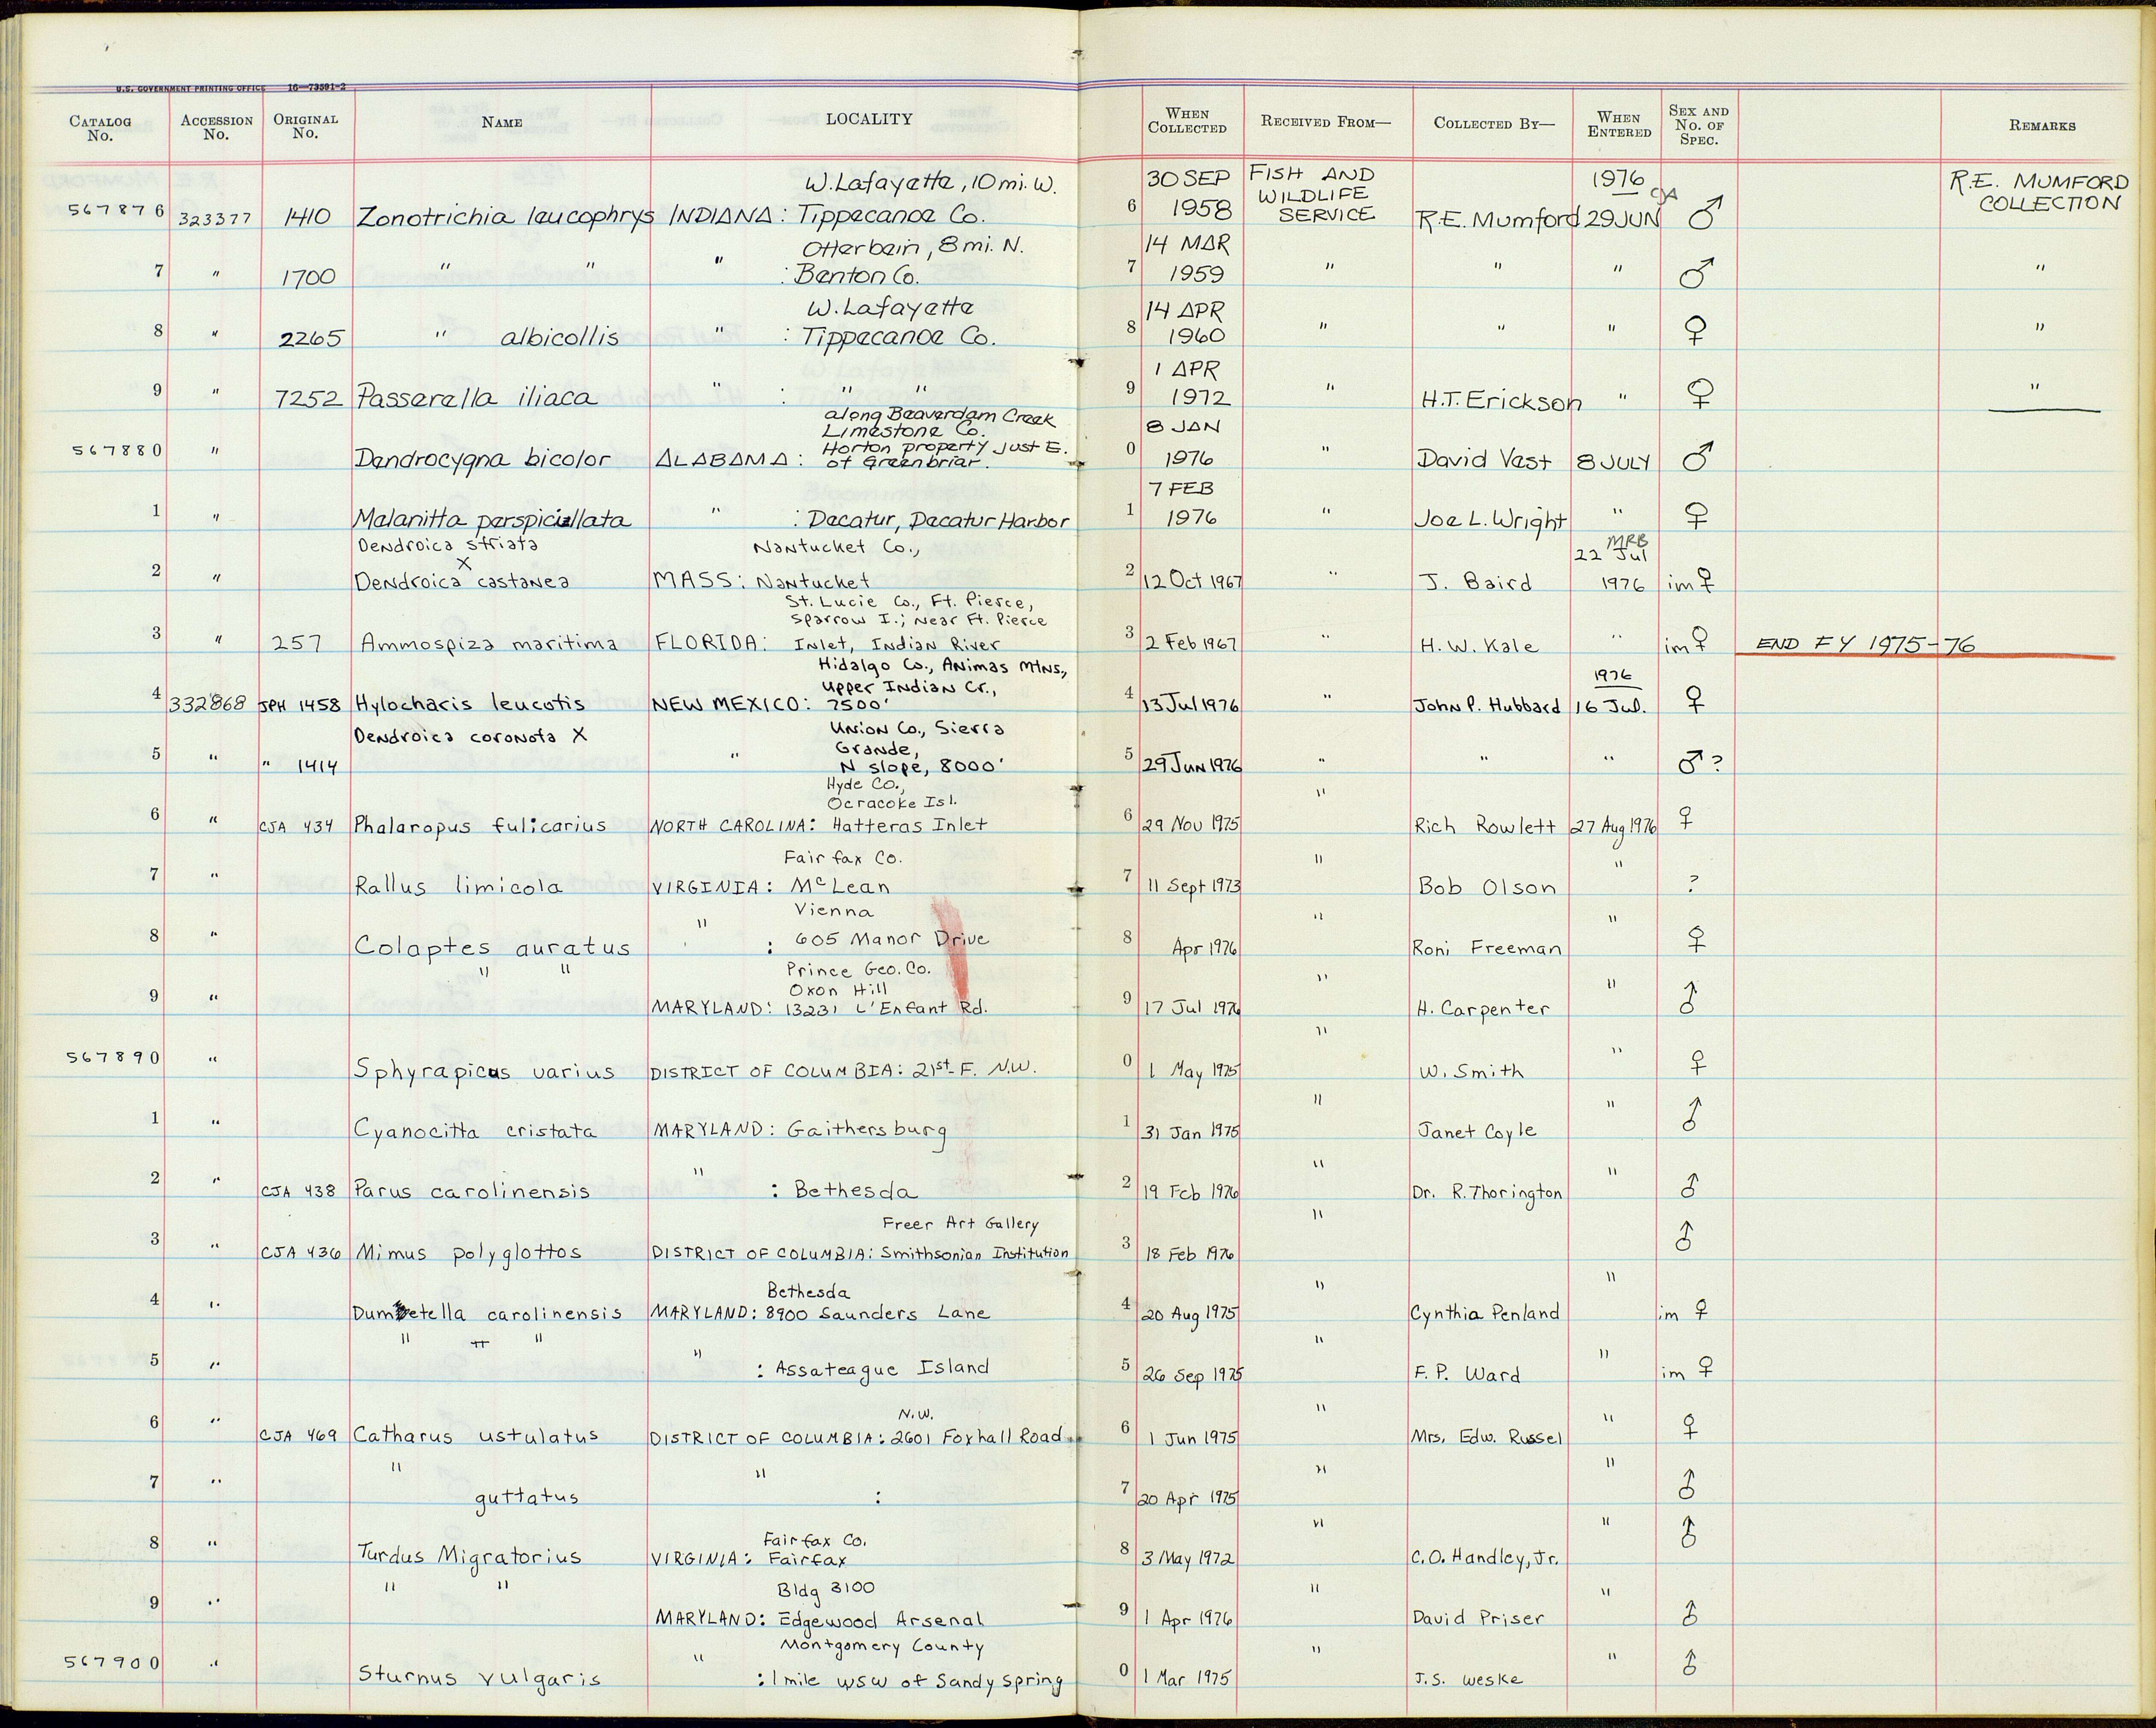 U.S. GOVERNMENT PRINTING OFFICE 16—73591-2
CATALOG No. ACCESSION No. ORIGINAL No. NAME LOCALITY WHEN COLLECTED RECEIVED FROM— COLLECTED BY— WHEN ENTERED SEX AND No. OF SPEC. REMARKS
W. Lafayette, 10 mi. W. 30 SEP FISH AND WILDLIFE 1976 R.E. MUMFORD
567876 323377 1410 Zonotrichia leucophrys INDIANA: Tippecanoe Co. 6 1958 SERVICE R.E. Mumford 29 JUN ♂ COLLECTION
Otterbein, 8 mi. N. 14 MAR
7 " 1700 " " " : Benton Co. 7 1959 " " " ♂ "
W. Lafayette 14 APR
8 " 2265 " albicollis " : Tippecanoe Co. 8 1960 " " " ♀ "
1 APR
9 " 7252 Passerella iliaca " : " " 9 1972 " H.T. Erickson " ♀ "
along Beaverdam Creek
Limestone Co. 8 JAN
Horton property just E.
567880 " Dendrocygna bicolor ALABAMA: of Greenbriar. 0 1976 " David Vest 8 JULY ♂
7 FEB
1 " Melanitta perspicillata " : Decatur, Decatur Harbor 1 1976 " Joe L. Wright " ♀
Dendroica striata Nantucket Co., MRB
X 22 Jul
2 " Dendroica castanea MASS: Nantucket 2 12 Oct 1967 " J. Baird 1976 im ♀
St. Lucie Co., Ft. Pierce,
Sparrow I.; near Ft. Pierce
3 " 257 Ammospiza maritima FLORIDA: Inlet, Indian River 3 2 Feb 1967 " H.W. Kale " im ♀ END FY 1975-76
Hidalgo Co., Animas Mtns.,
Upper Indian Cr., 1976
4 332868 JPH 1458 Hylocharis leucotis NEW MEXICO: 7500' 4 13 Jul 1976 " John P. Hubbard 16 Jul. ♀
Dendroica coronata X Union Co., Sierra
Grande,
5 " " 1414 " N slope, 8000' 5 29 Jun 1976 " " " ♂ ?
Hyde Co.,
Ocracoke Isl. "
6 " CJA 434 Phalaropus fulicarius NORTH CAROLINA: Hatteras Inlet 6 29 Nov 1975 Rich Rowlett 27 Aug 1976 ♀
Fairfax Co. " "
7 " Rallus limicola VIRGINIA: McLean 7 11 Sept 1973 Bob Olson ?
Vienna " "
8 " Colaptes auratus " : 605 Manor Drive 8 Apr 1976 Roni Freeman ♀
" " Prince Geo. Co. "
Oxon Hill "
9 " MARYLAND: 13231 L'Enfant Rd. 9 17 Jul 1976 H. Carpenter ♂
" "
567890 " Sphyrapicus varius DISTRICT OF COLUMBIA: 21st. F. N.W. 0 1 May 1975 W. Smith ♀
" "
1 " Cyanocitta cristata MARYLAND: Gaithersburg 1 31 Jan 1975 Janet Coyle ♂
" " "
2 " CJA 438 Parus carolinensis : Bethesda 2 19 Feb 1976 Dr. R. Thorington ♂
Freer Art Gallery "
3 " CJA 436 Mimus polyglottos DISTRICT OF COLUMBIA: Smithsonian Institution 3 18 Feb 1976 ♂
Bethesda " "
4 " Dumetella carolinensis MARYLAND: 8900 Saunders Lane 4 20 Aug 1975 Cynthia Penland im ♀
" " " " "
5 " : Assateague Island 5 26 Sep 1975 F.P. Ward im ♀
N.W. " "
6 " CJA 469 Catharus ustulatus DISTRICT OF COLUMBIA: 2601 Foxhall Road 6 1 Jun 1975 Mrs. Edw. Russel ♀
" " " "
7 " guttatus : 7 20 Apr 1975 ♂
Fairfax Co. " "
8 " Turdus Migratorius VIRGINIA: Fairfax 8 3 May 1972 C.O. Handley, Jr. ♂
" " Bldg 3100 " "
9 " MARYLAND: Edgewood Arsenal 9 1 Apr 1976 David Priser ♂
Montgomery County " "
567900 " Sturnus vulgaris " : 1 mile WSW of Sandy Spring 0 1 Mar 1975 J.S. Weske ♂